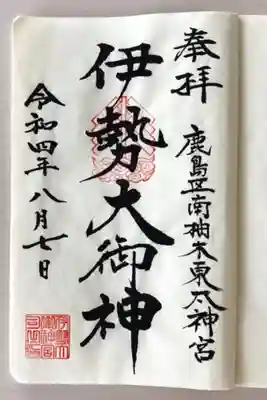 奉拝
鹿島区南柚木東 神宮
伊勢大御神
令和四年八月七日